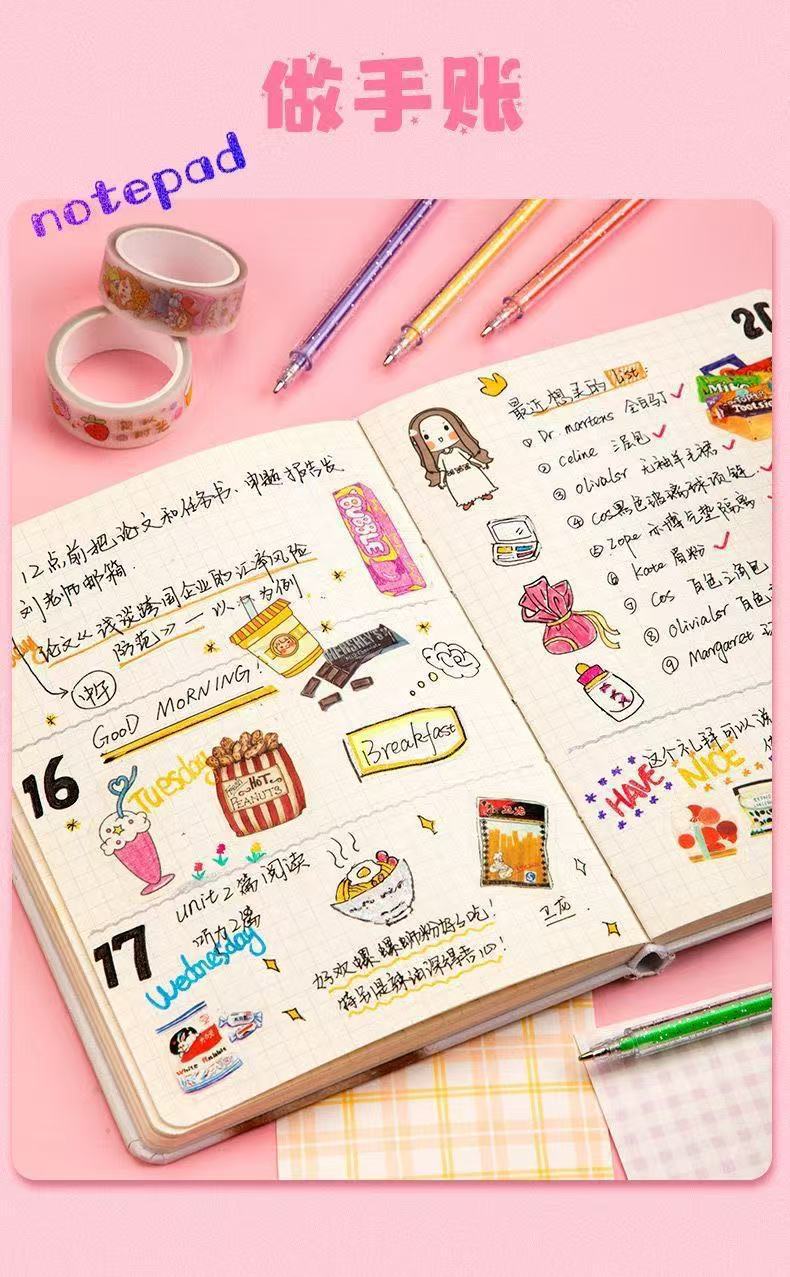 做手账
notepad
12点前把论文和任务书、申题报告发
刘老师邮箱.
论文《浅谈跨国企业的汇率风险
防范》——以 为例
中午
GOOD MORNING!
BUBBLE
HERSHEY'S
Breakfast
16
Tuesday
HOT
PEANUTS
unit 2 篇阅读
听力2篇
17
Wednesday
好欢螺螺蛳粉好好吃!
特别是辣油深得吾心!
卫龙
White Rabbit
20
最近想买的list:
① Dr. martens
② Celine 三层包
③ Olivialsr 无袖羊毛裙
④ Cos黑色玻璃珠项链
⑤ Zope
⑥ Kate 眉粉
⑦ Cos 白色三角包
⑧ Olivialsr 白色
⑨ Margaret
Milk
Tootsie
这个礼拜可以说
HAVE NICE